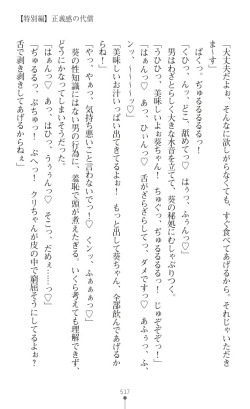 【特別編】正義感の代償
「大丈夫だよぉ、そんなに欲しがらなくても、すぐ食べてあげるから。それじゃいただき
ま～す」
ぱくっ。ぢゅるるるるるっ!
「くひっ、んっ、どこ、舐めてっ♡ はっ、ふぅんっ♡」
男はわざとらしく大きな水音を立てて、葵の秘処にむしゃぶりつく。
「うひっ、美味しいよぉ葵ちゃん! ちゅぐっ、ぢゅるるるるっ! じゅぞぞぞっ!」
「はぁんっ♡ あっ、ひぃんっ♡ 舌がざらざらしてっ、ダメですっ♡ あふぅっ、ふ、
ぅんっ♡」
「美味しいお汁いっぱい出てきてるよぉ! もっと出して葵ちゃん、全部飲んであげるか
らぁ!」
「やっ、やぁっ、気持ち悪いこと言わないでっ! くンッ、ふぁぁぁっ♡」
葵の性知識にはない男の行為に、羞恥で頭が煮えたぎる。いくら考えても理解できず、
どうにかなってしまいそうだった。
「はぁんっ♡ あっ、はひっ、うぅんっ♡ そこっ、だめぇ……っ♡」
「ぢゅるるっ、ぷちゅっ! ぷへっ! クリちゃんが皮の中で窮屈そうにしてるよぉ?
舌で剥き剥きしてあげるからねぇ」
517